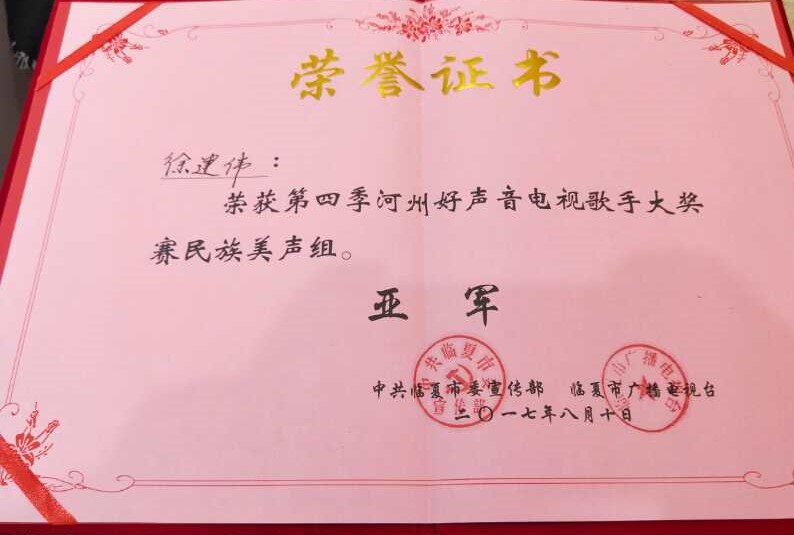 荣誉证书
徐建伟：
荣获第四季河州好声音电视歌手大奖
赛民族美声组。
亚 军
中共临夏市委宣传部 临夏市广播电视台
二〇一七年八月十日
中共临夏市委
宣传部
市广播电视台